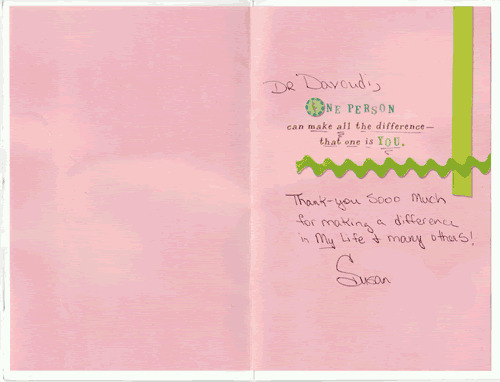 Dr Davoudi,
ONE PERSON
can make all the difference—
that one is YOU.
Thank-you Sooo Much
for making a difference
in My Life & many others!
Susan